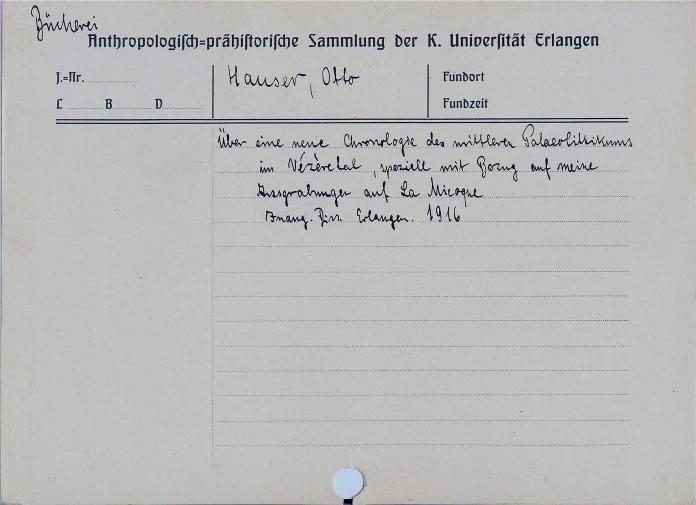 Bücherei
Anthropologisch=prähistorische Sammlung der K. Universität Erlangen
J.=Nr.
Hauser, Otto
Fundort
L B D
Fundzeit
Über eine neue Chronologie des mittleren Palaeolithikums
im Vézèretal, speziell mit Bezug auf meine
Ausgrabungen auf La Micoque
Inaug. Diss. Erlangen. 1916